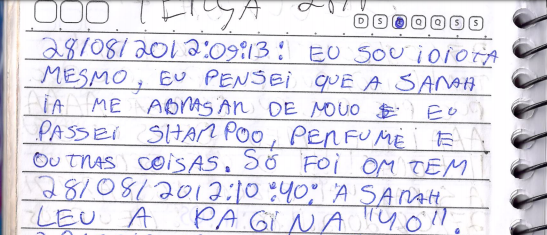 TERÇA
D S Q Q S S
28/08/2012:09:13: EU SOU IDIOTA
MESMO, EU PENSEI QUE A SARAH
IA ME ABRASAR DE NOVO E EU
PASSEI SHAMPOO, PERFUME E
OUTRAS COISAS. SÓ FOI OMTEM
28/08/2012:10:40: A SARAH
LEU A PAGINA "40".